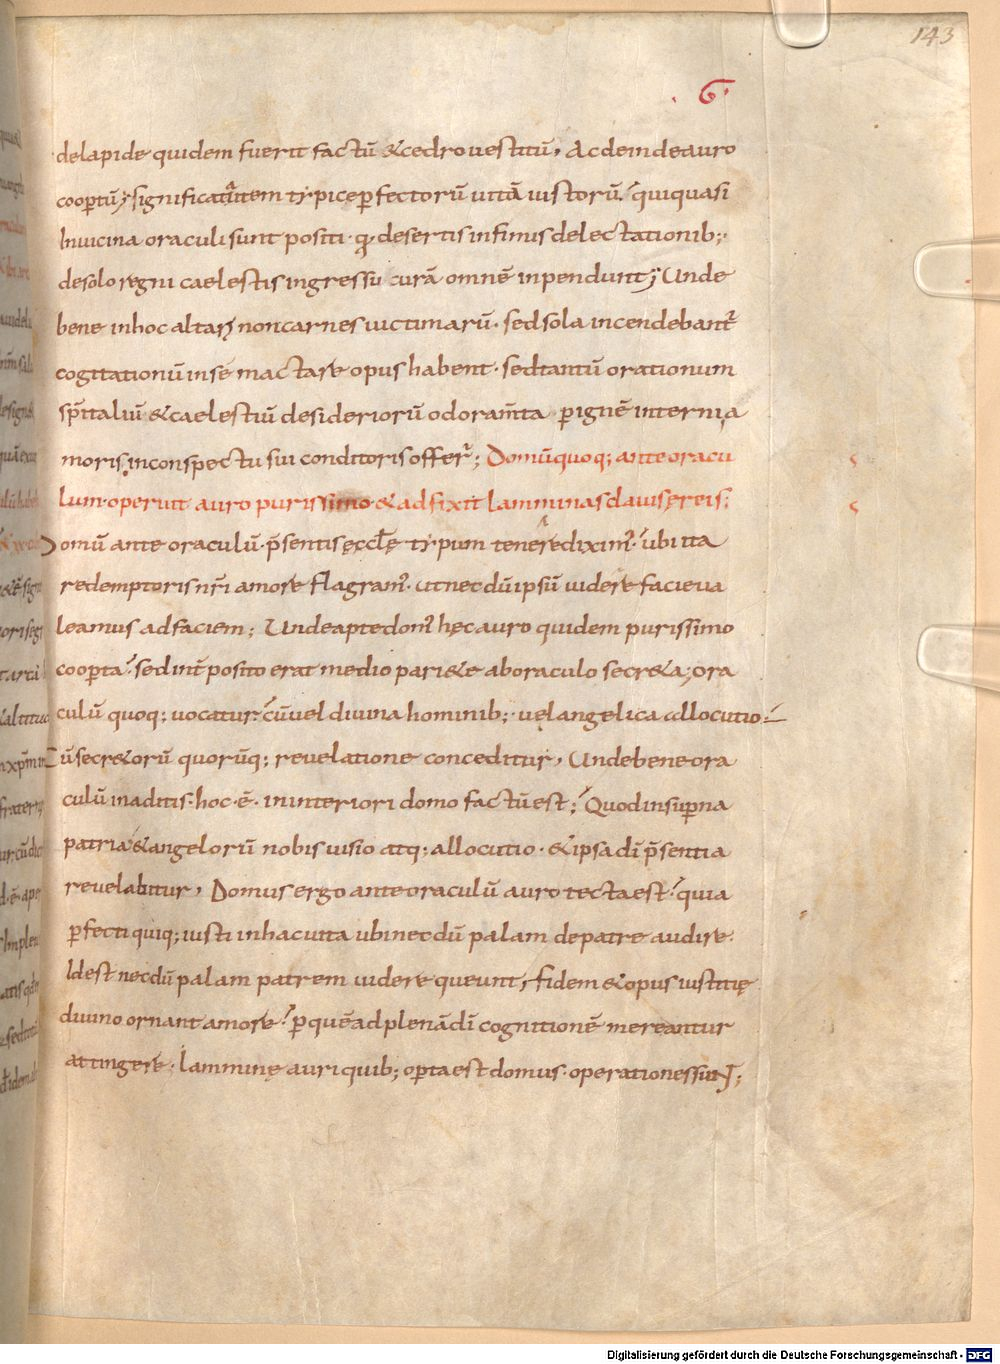 143
.6.
de lapide quidem fuerit factū & cedro uestitū, Ac deinde auro
coop̱tū; significat aūtem typice ꝑfectorū uitā iustorū. qui quasi
In uicina oraculi sunt positi. qđ desertis infimis delectationib;.
de solo regni caelestis ingressu curā omnē inpendunt; Unde
bene in hoc altari non carnes uictimarū. sed sola incendebant᷑
cogitationū in se mactare opus habent. sed tantū orationum
sp̄italiū & caelestiū desideriorū odoram̄ta ꝑ ignē interni a
moris. in conspectu sui conditoris offer᷑; Domū quoq; ante oracu
lum operuit auro purissimo & adfixit lamminas clauis ęreis;
Domū ante oraculū. p̄sentis ęccl̄ę typum tenere diximꝰ. ubi ita
redemptoris nr̄i amore flagramꝰ. ut necdū ipsū uidere facie ua
leamus ad faciem; Unde apte domꝰ hęc auro quidem purissimo
cooꝑta. sed int̄posito erat medio pari&e ab oraculo secr&a; ora
culū quoq; uocatur. cū uel diuina hominib;. uel angelica allocutio.
Cū secr&orū quorūq; reuelatione conceditur, Unde bene ora
culū in aditis. hoc .ē. in interiori domo factū est; Quod in suꝑna
patria & angelorū nobis uisio atq; allocutio. & ipsa dī p̄sentia
reuelabitur, Domus ergo ante oraculū auro tecta est. quia
ꝑfecti quiq; iusti in hac uita ubi necdū palam de patre audire.
Id est necdū palam patrem uidere queunt, fidem & opus iustitię
diuino ornant amore. ꝑ quē ad plenā dī cognitionē mereantur
attingere. Lamminę auri quib; oꝑta est domus. operationes sunt;
Digitalisierung gefördert durch die Deutsche Forschungsgemeinschaft - DFG